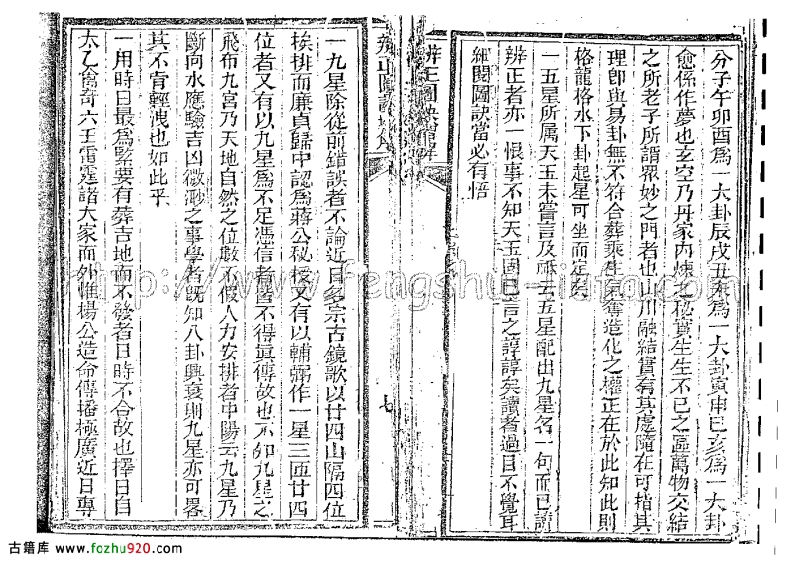 分子午卯酉為一大卦辰戌丑未為一大卦寅申巳亥為一大卦
愈係作夢也玄空乃丹家內煉之秘實生生不已之區萬物交結
之所老子所謂眾妙之門者也山川融結實有其處隨在可指其
理即與易卦無不符合葬乘生氣奪造化之權正在於此知此則
格龍格水下卦起星可坐而定矣
一五星所属天玉未嘗言及祇云五星配出九星名一句而已讀
辨正者亦一恨事不知天玉固已言之諄諄矣讀者過目不覺耳
細閱圖訣當必有悟
辨正圖訣
一九星除從前錯誤者不論近日多宗古鏡歌以廿四山隔四位
挨排而廉貞歸中認為蔣公秘授又有以輔弼作一星三匝廿四
位者又有以九星為不足憑信者皆不得真傳故也不知九星之
飛布九宮乃天地自然之位數不假人力安排者中陽云九星乃
斷向水應驗吉凶微渺之事學者既知八卦興衰則九星亦可畧
其不肯輕洩也如此乎
一用時日最為緊要有葬吉地而不發者日時不合故也擇日自
太乙禽奇六壬雷霆諸大家而外惟楊公造命傳播極廣近日專
七
http://www.fengshui-info.com
古籍库 www.fozhu920.com